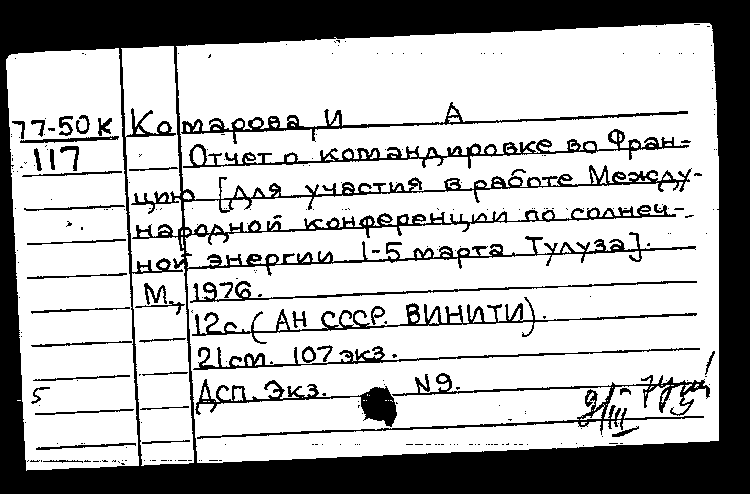 77-50к Комарова, И А
117 Отчет о командировке во Фран=
цию [для участия в работе Между-
народной конференции по солнеч-
ной энергии 1-5 марта. Тулуза].
М., 1976.
12с. (АН СССР. ВИНИТИ).
21см. 107 экз.
5 Дсп. Экз. N9.
9/III